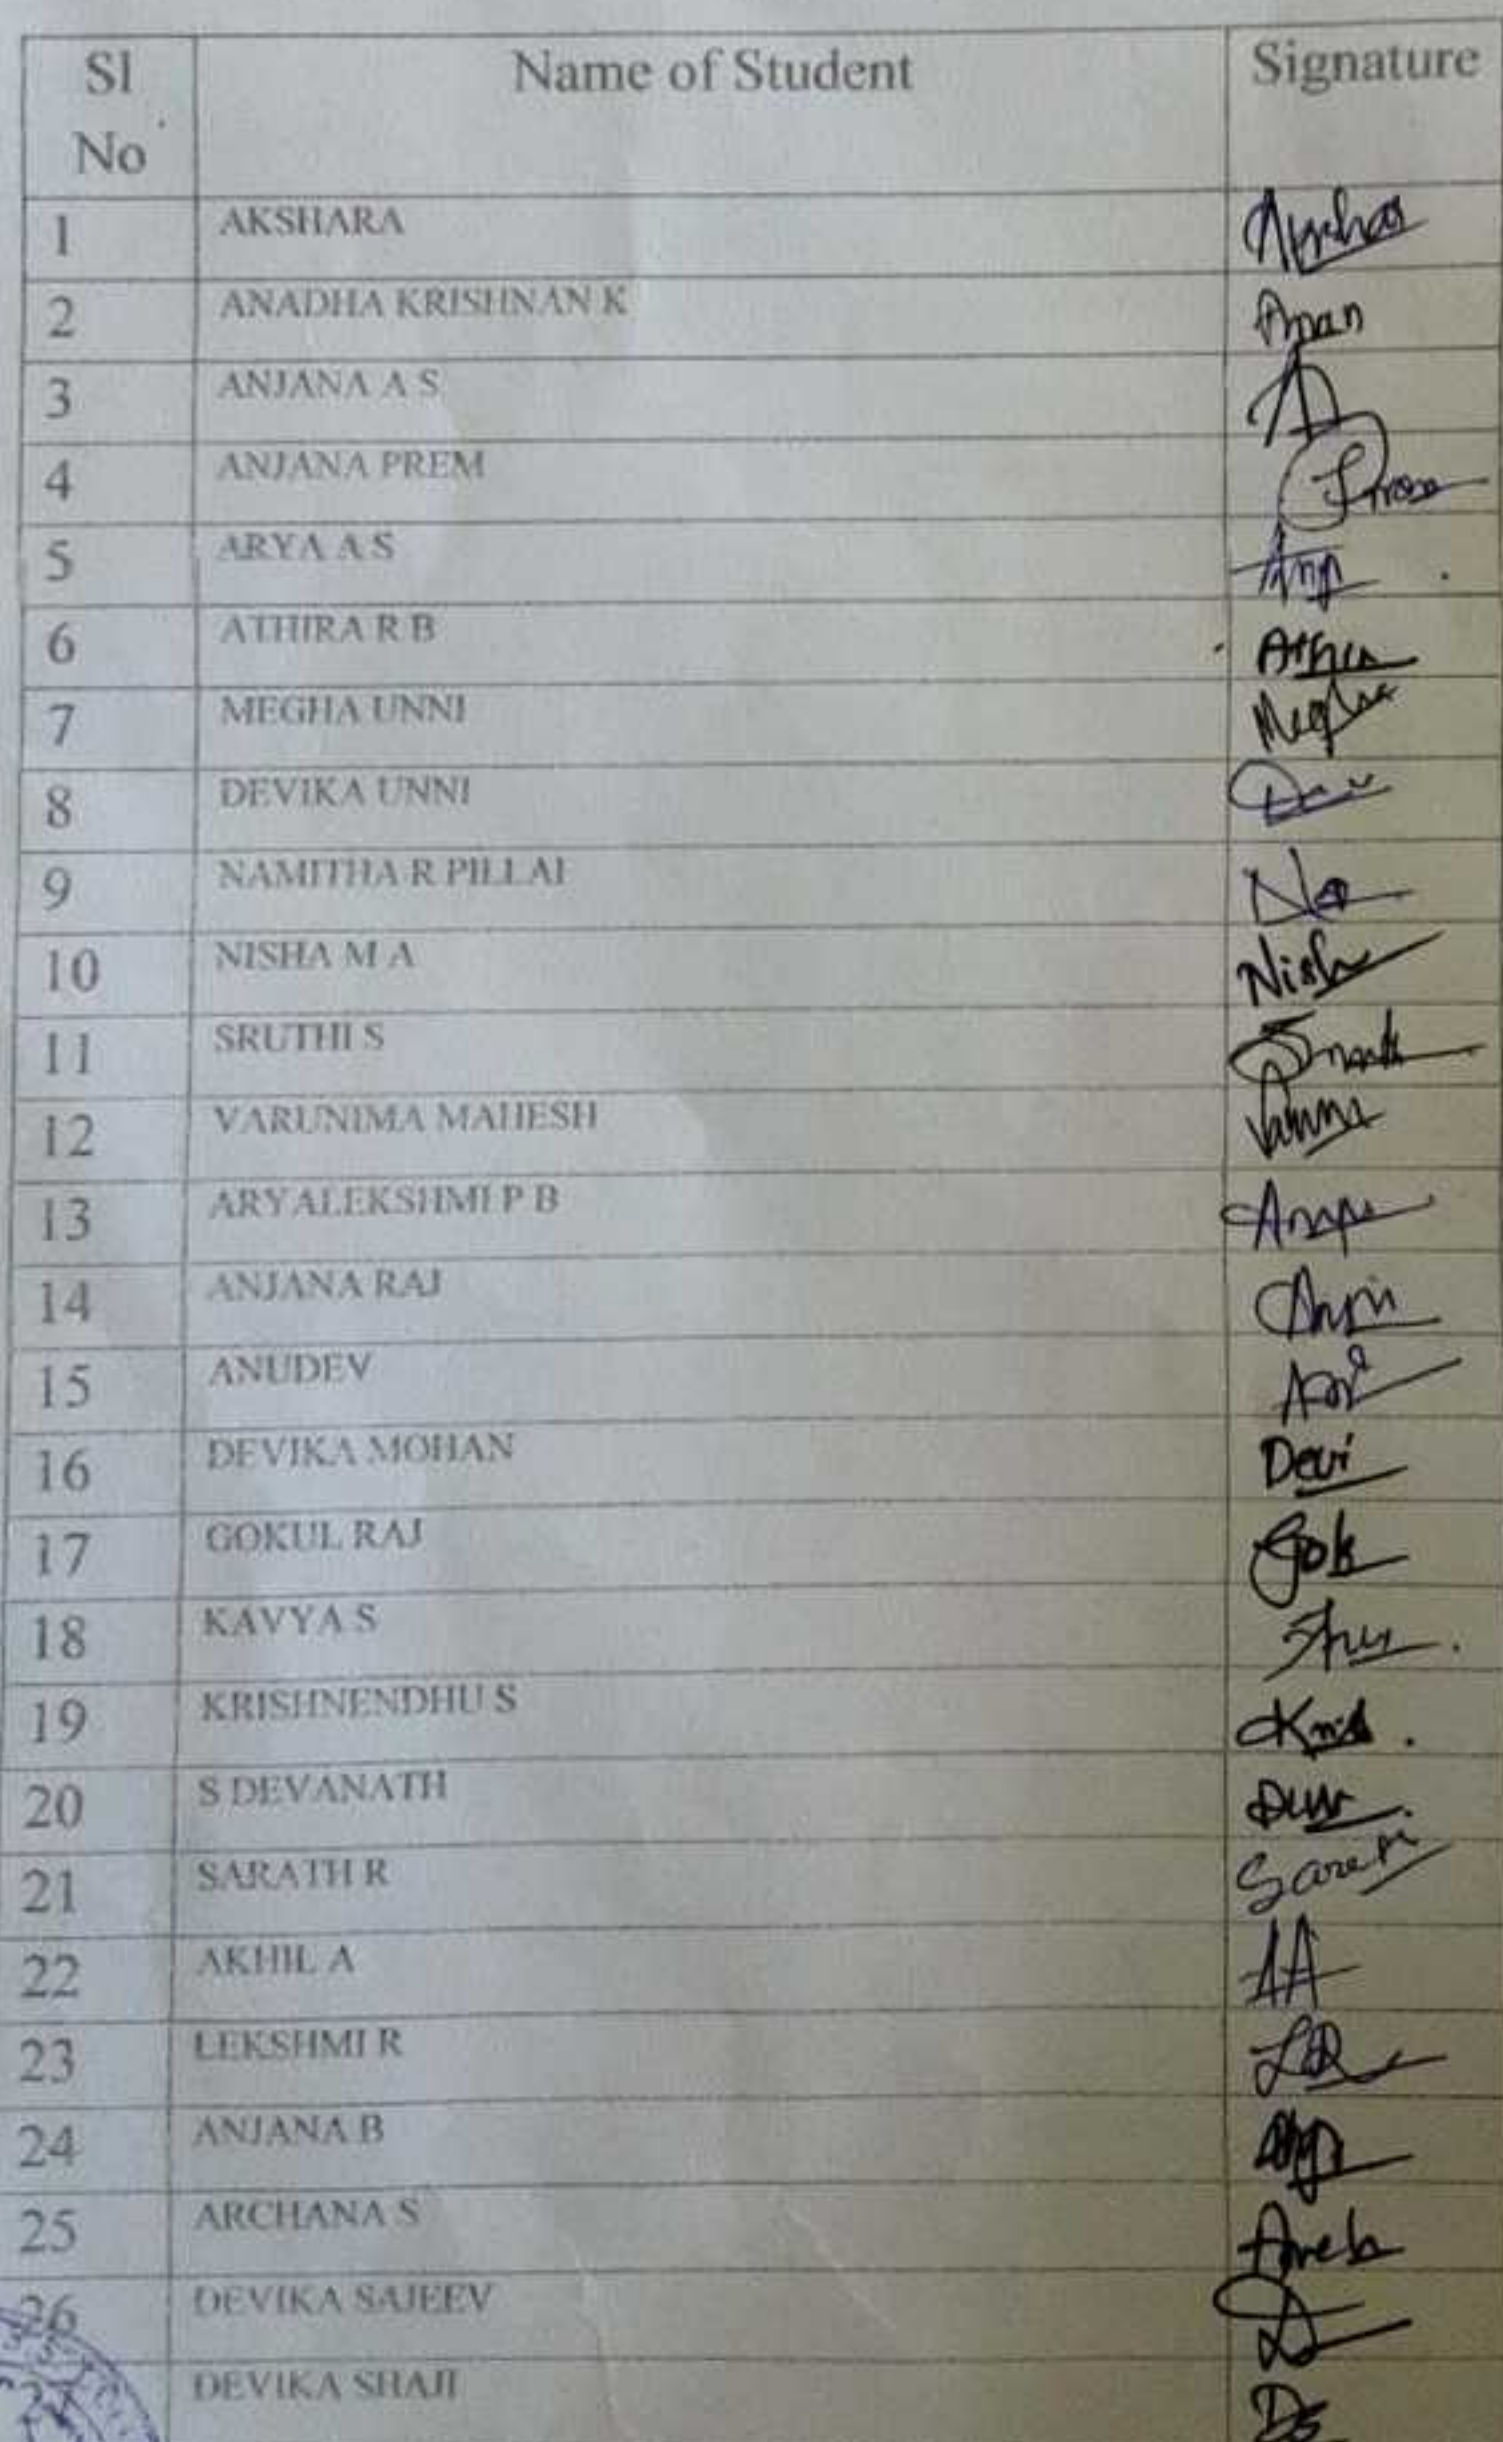 Sl No Name of Student Signature
1 AKSHARA
2 ANADHA KRISHNAN K Anan
3 ANJANA A S
4 ANJANA PREM
5 ARYA A S
6 ATHIRA R B
7 MEGHA UNNI Megha
8 DEVIKA UNNI
9 NAMITHA R PILLAI
10 NISHA M A Nish
11 SRUTHI S
12 VARUNIMA MAHESH
13 ARYALEKSHMI P B
14 ANJANA RAJ
15 ANUDEV
16 DEVIKA MOHAN Devi
17 GOKUL RAJ Gok
18 KAVYA S
19 KRISHNENDHU S
20 S DEVANATH
21 SARATH R
22 AKHIL A AA
23 LEKSHMI R
24 ANJANA B
25 ARCHANA S
26 DEVIKA SAJEEV D
27 DEVIKA SHAJI DS